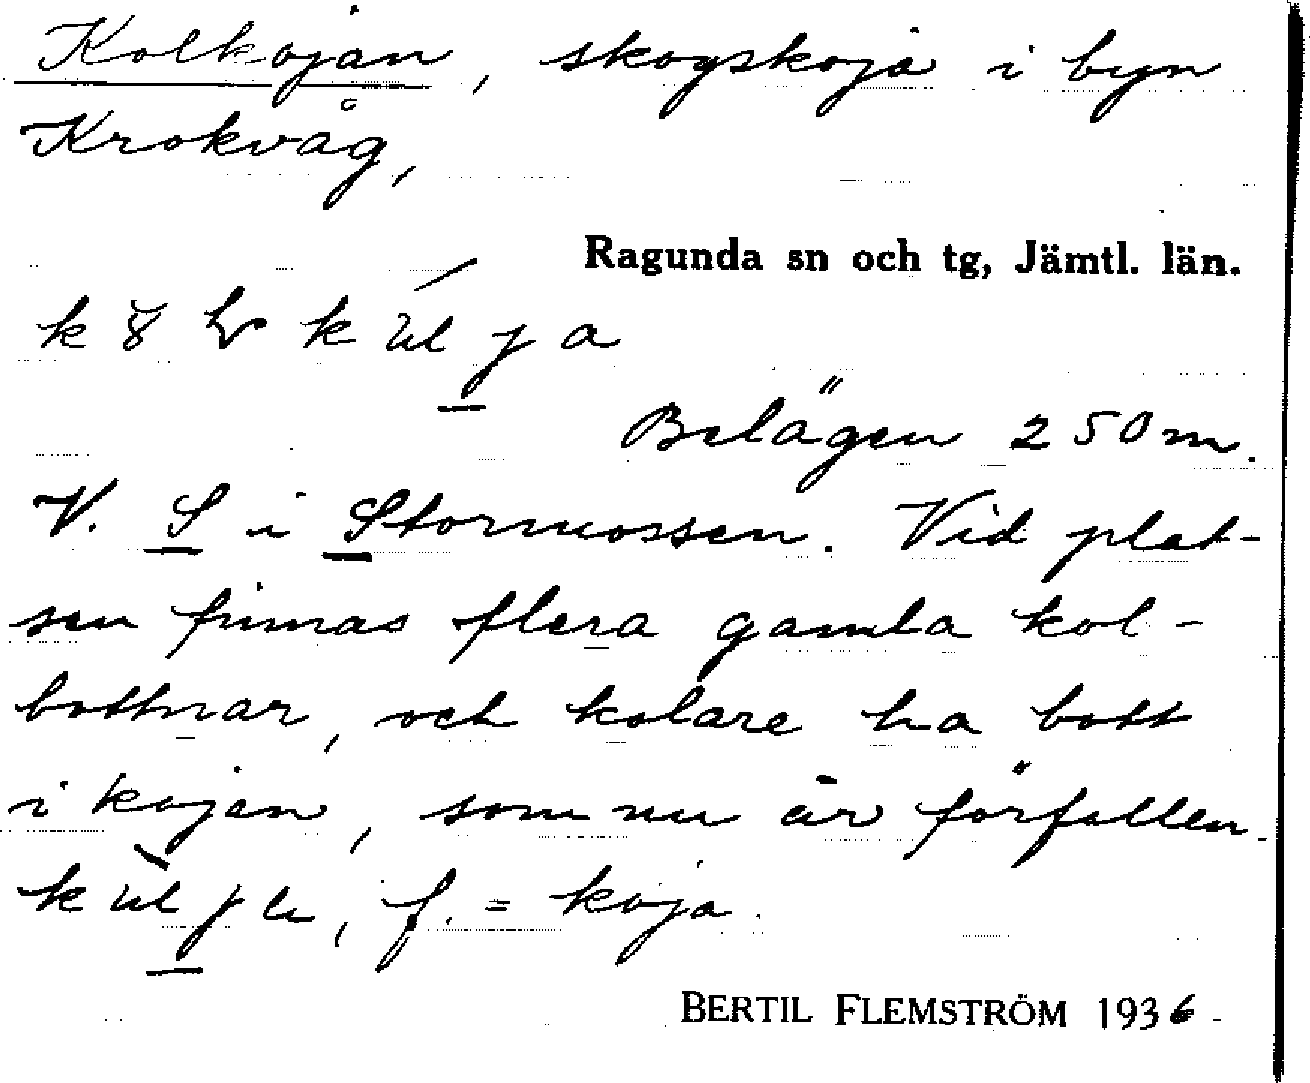 Kolkojan, skogskoja i byn
Krokvåg,
Ragunda sn och tg, Jämtl. län.
Belägen 250 m.
V. S i Stormossen. Vid plat-
sen finnas flera gamla kol-
bottnar, och kolare ha bott
i kojan, som nu är förfallen.
f. = koja.
BERTIL FLEMSTRÖM 1936